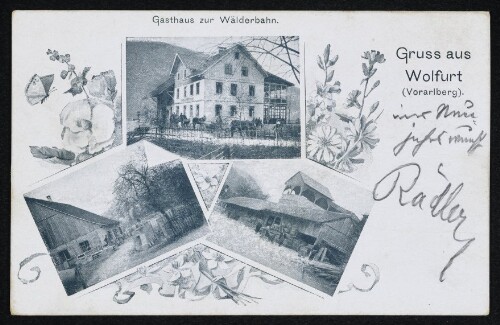 Gasthaus zur Wälderbahn.
Gruss aus
Wolfurt
(Vorarlberg).
Rädler